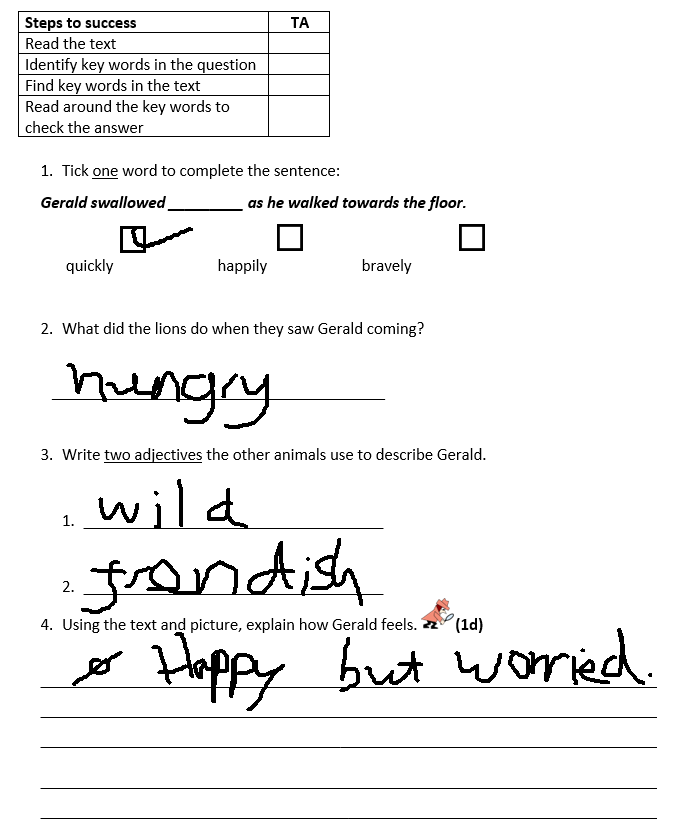 Steps to success TA
Read the text
Identify key words in the question
Find key words in the text
Read around the key words to
check the answer
1. Tick one word to complete the sentence:
Gerald swallowed _________ as he walked towards the floor.
quickly happily bravely
2. What did the lions do when they saw Gerald coming?
hungry
3. Write two adjectives the other animals use to describe Gerald.
1. wild
2. frondish
4. Using the text and picture, explain how Gerald feels. (1d)
Happy but worried.